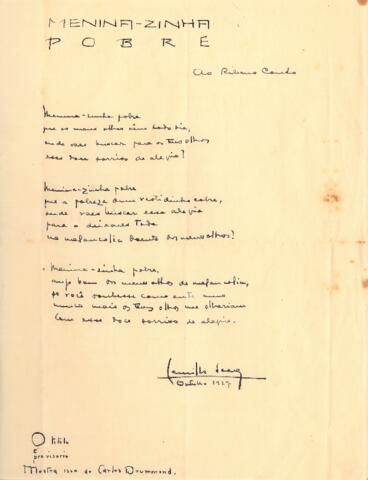 MENINA-ZINHA
POBRE
Ao Ribeiro Couto
Menina-zinha pobre
que os meus olhos vêem todo dia,
onde vaes buscar para os teus olhos
esse doce sorriso de alegria?
Menina-zinha pobre
que a pobreza dum vestidinho cobre,
onde vaes buscar essa alegria
para a deixares toda
na melancolia doente dos meus olhos?
Menina-zinha pobre,
anjo bom dos meus olhos de melancolia,
se você soubesse como
muito mais os teus olhos me olhariam
com esse doce sorriso de alegria.
Outubro 1927
O titulo
é provisorio
Mostra isso ao Carlos Drummond.